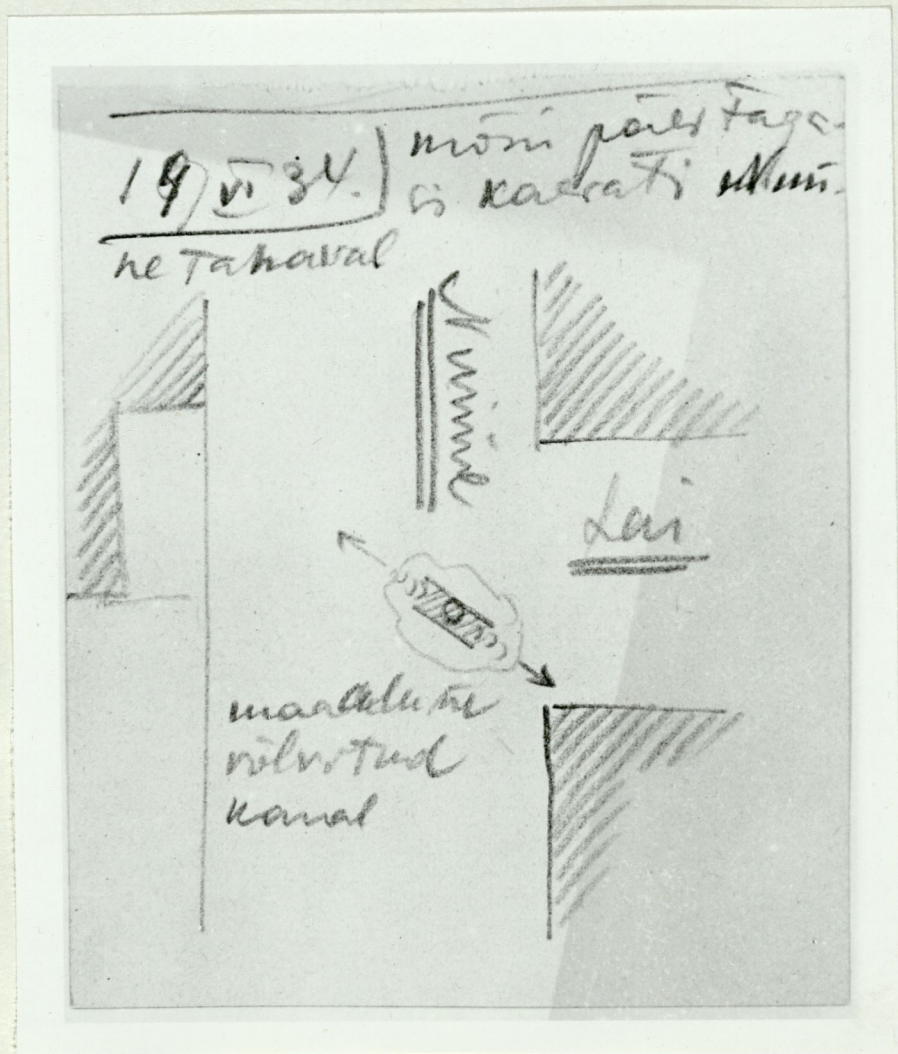 19) VI 34.) mõni päev taga-
si kaevati Nun-
ne tänaval
Nunne
Lai
maaalune
võlvitud
kanal